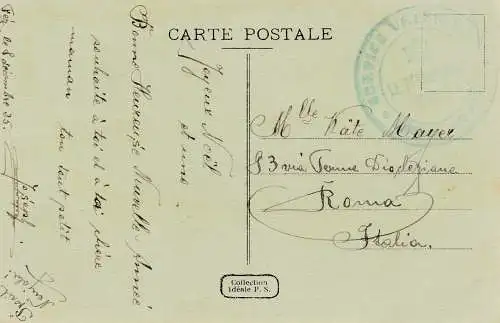 CARTE POSTALE
Fez, le 8 décembre 35.
Joyeux Noël
et une
Bonne Heureuse Nouvelle Année
souhaite à toi et à ta chère
maman ton tout petit
Mlle Käte Mayer
83 via Terme Diocleziane
Roma
Italia.
Collection
Idéale P. S.
SERVICE